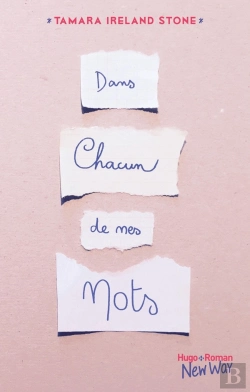 * TAMARA IRELAND STONE *
Dans
Chacun
de mes
Mots
Hugo + Roman
New Way
B